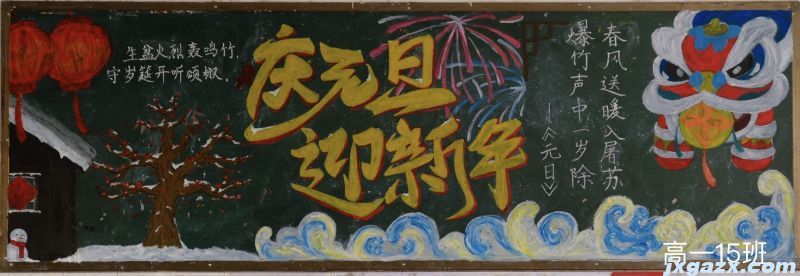 生盆火烈轰鸣竹
守岁筵开听颂椒
庆元旦
迎新年
春风送暖入屠苏
爆竹声中一岁除
—《元日》
高一15班
jxgazx.com